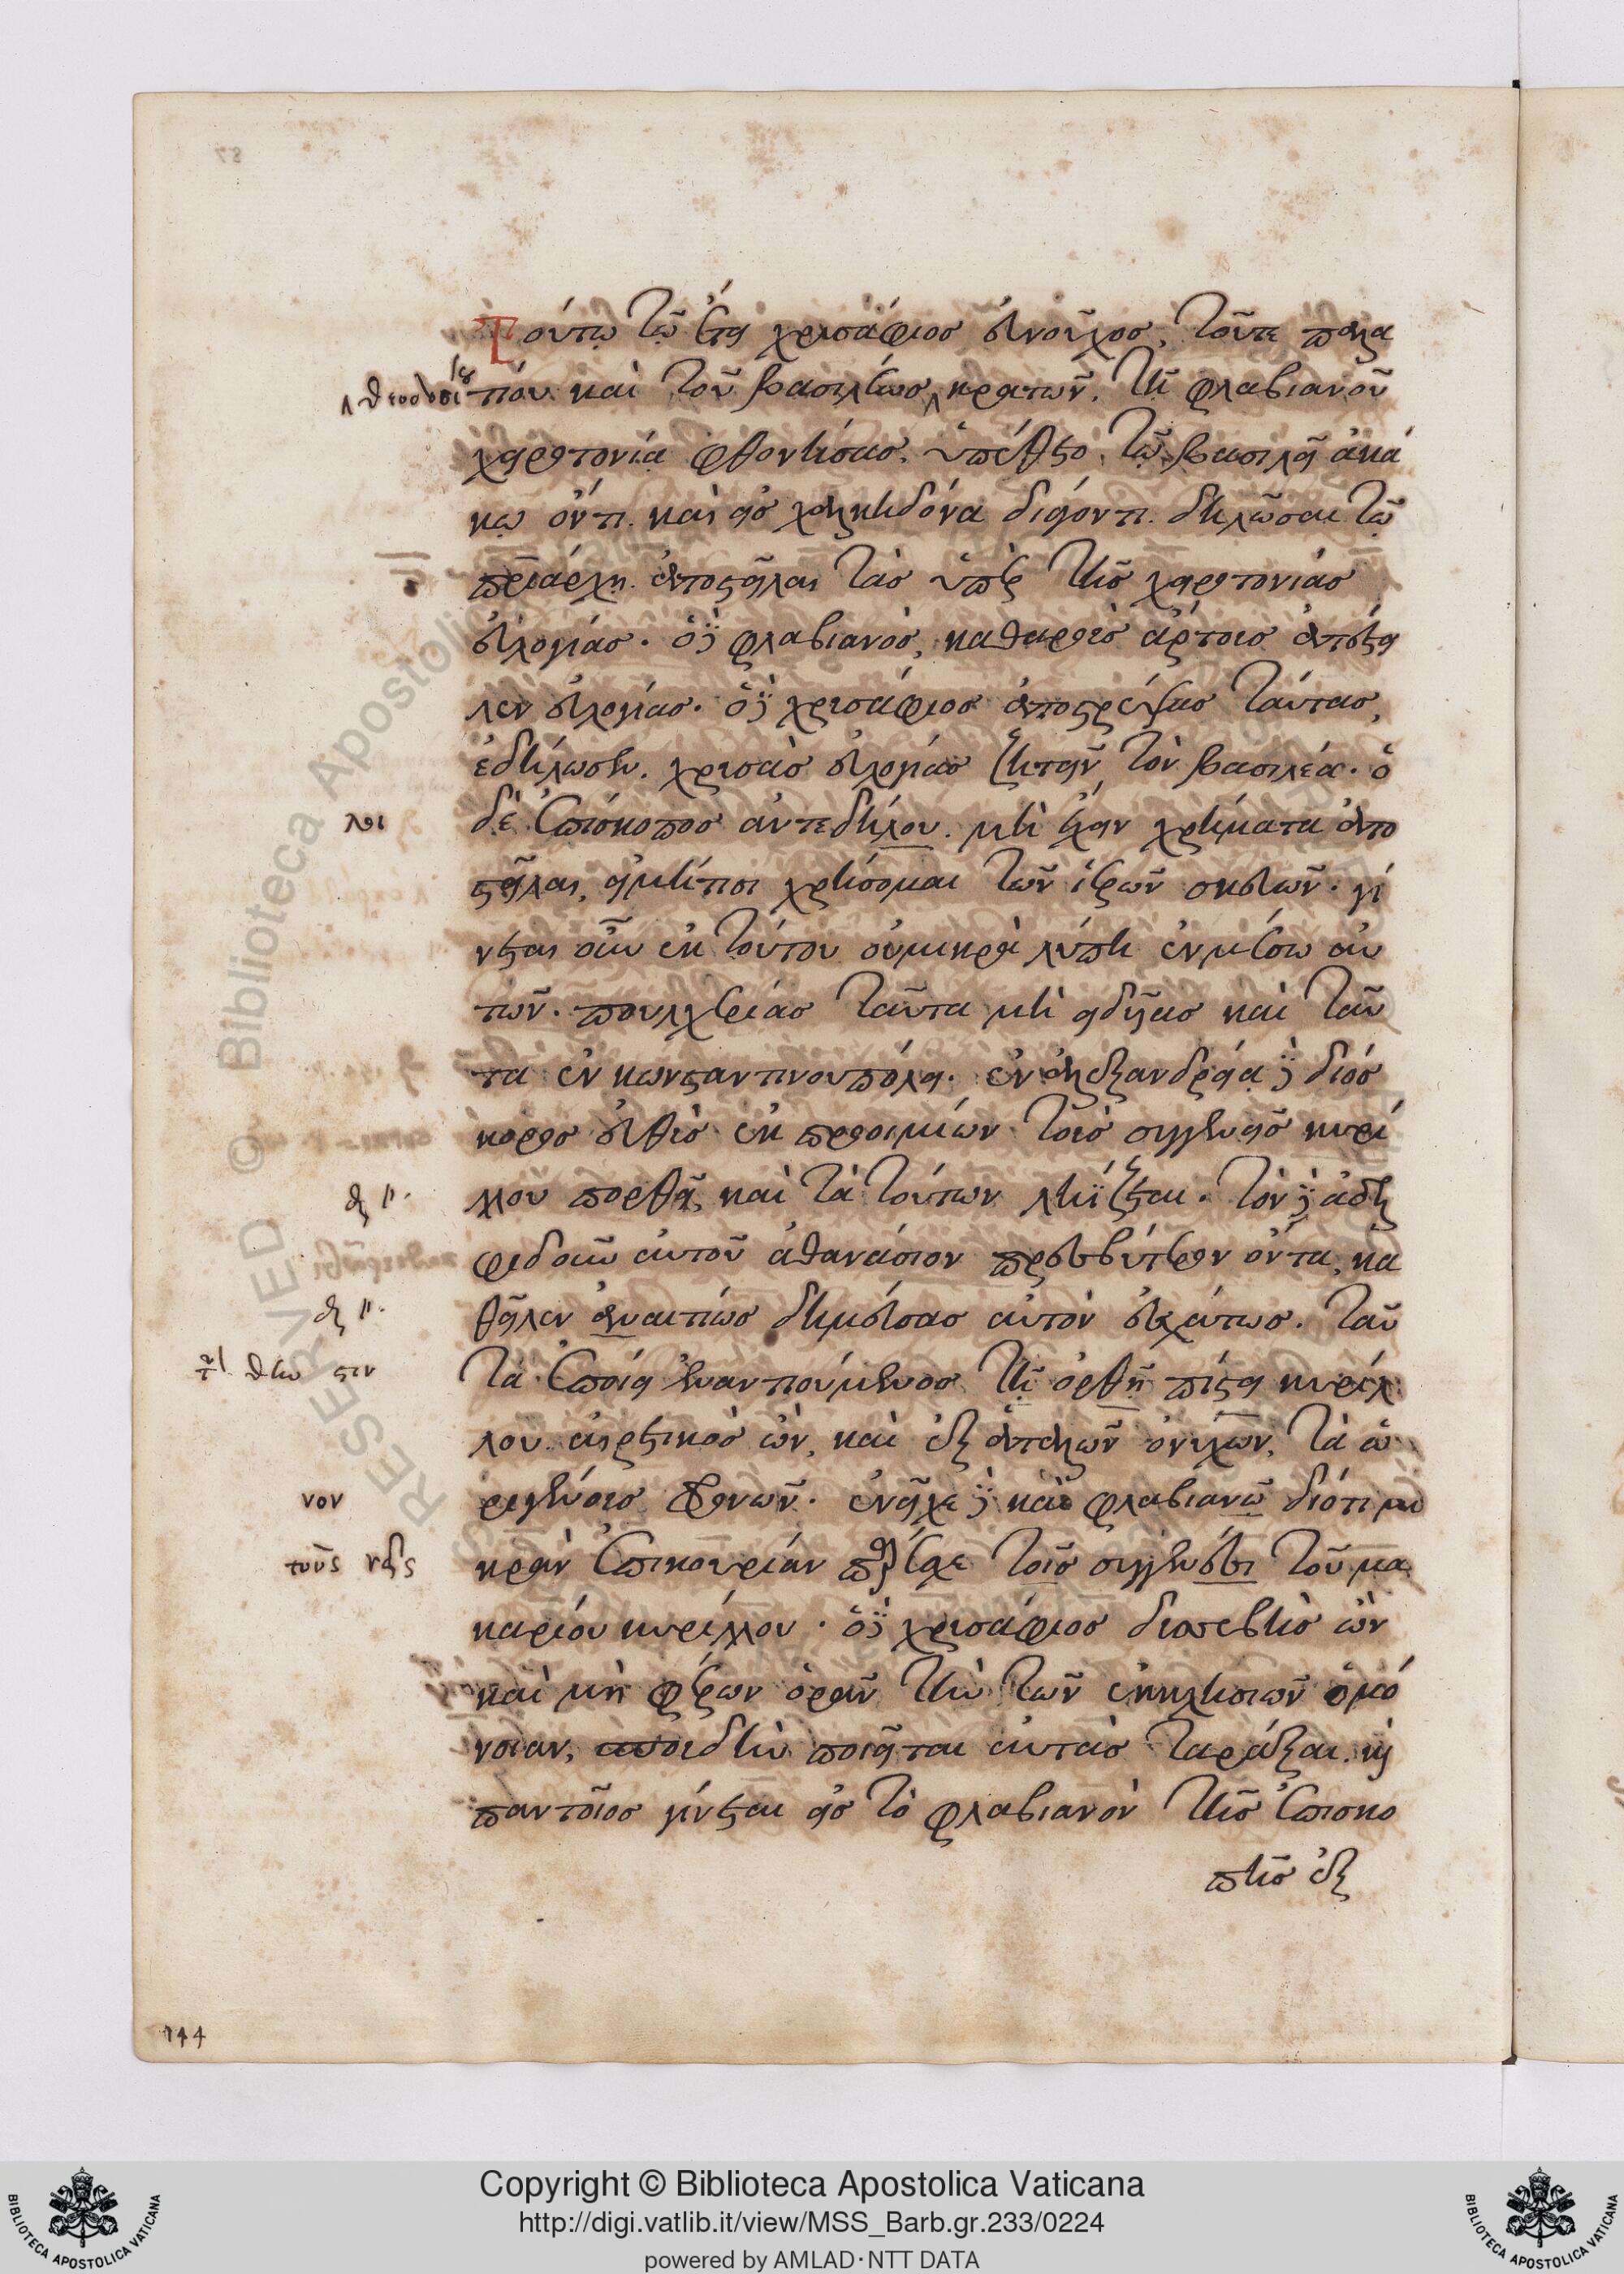 78
Τούτῳ τῷ ἔτει χρισάφιος εὐνοῦχος, τοῦτε παλα
λ θεοδοσίου
τίου καὶ τοῦ βασιλέως κρατῶν, τῇ φλαβιανοῦ
χειροτονία φθονήσας, ὑπέθετο τῷ βασιλεῖ ἀκά
κῳ ὄντι καὶ εἰς χαλκηδόνα διάγοντι δηλῶσαι τῷ
πριάρχῃ ἀποστεῖλαι τὰς ὑπὲρ τῆς χειροτονίας
εὐλογίας. ὁ δὲ φλαβιανὸς, καθαροῖς ἄρτοις ἀπέστει
λεν εὐλογίας. ὁ δὲ χρισάφιος ἀποστρέψας ταύτας,
ἐδήλωσεν, χρισὰς εὐλογίας ζητεῖν τὸν βασιλέα. ὁ
λοι
δὲ ἐπίσκοπος ἀντεδήλου μὴ ἔχειν χρήματα ἀπο
στεῖλαι, εἰμήτισι χρήσομαι τῶν ἱερῶν σκευῶν. γί
νεται οὖν ἐκ τούτου οὐμικρὰ λύπη ἐνμέσω αὐ
τῶν. πουλχερίας ταῦτα μὴ εἰδείας καὶ ταῦ
τα ἐν κωνσταντινουπόλει. ἐν ἀλεξανδρεία δὲ διόσ
κορος εὐθὺς ἐκ προοιμίων τοῖς συγγενεῖς κυρί
λλου πορθεῖ, καὶ τὰ τούτων ληΐζεται. τὸν δὲ ἀδελ
φιδοῦν αὐτοῦ ἀθανάσιον πρεσβύτερον ὄντα, κα
θεῖλεν ἀναιτίως δημεύσας αὐτὸν ἐσχάτως. ταῦ
τὴν θῆν στιν
τα ἐποίει ἐναντιούμενος τῇ ὀρθῇ πίστει κυρίλ
λου αἱρετικὸς ὢν, καὶ ἐξ ἁπαλῶν ὀνύχων, τὰ ὠ
νον
ριγένους φρονῶν. ἐνεῖχε δὲ καὶ φλαβιανῷ διότι μι
τοὺς νεῖς
κρὰν ἐπικουρίαν παρέσχε τοῖς συγγενέσι τοῦ μα
καρίου κυρίλλου. ὁ δὲ χρισάφιος δισσεβὴς ὢν
καὶ μὴ φέρων ὁρᾶν τὴν τῶν ἐκκλησιῶν ὁμό
νοιαν, σπουδὴν ποιεῖται αὐτὰς ταράξαι. καὶ
παντοῖος γίνεται εἰς τὸ φλαβιανὸν τῆς ἐπισκο
πῆς ἐξ
144
RESERVED © Biblioteca Apostolica Vaticana
Copyright © Biblioteca Apostolica Vaticana
http://digi.vatlib.it/view/MSS_Barb.gr.233/0224
powered by AMLAD·NTT DATA
BIBLIOTECA APOSTOLICA VATICANA
BIBLIOTECA APOSTOLICA VATICANA